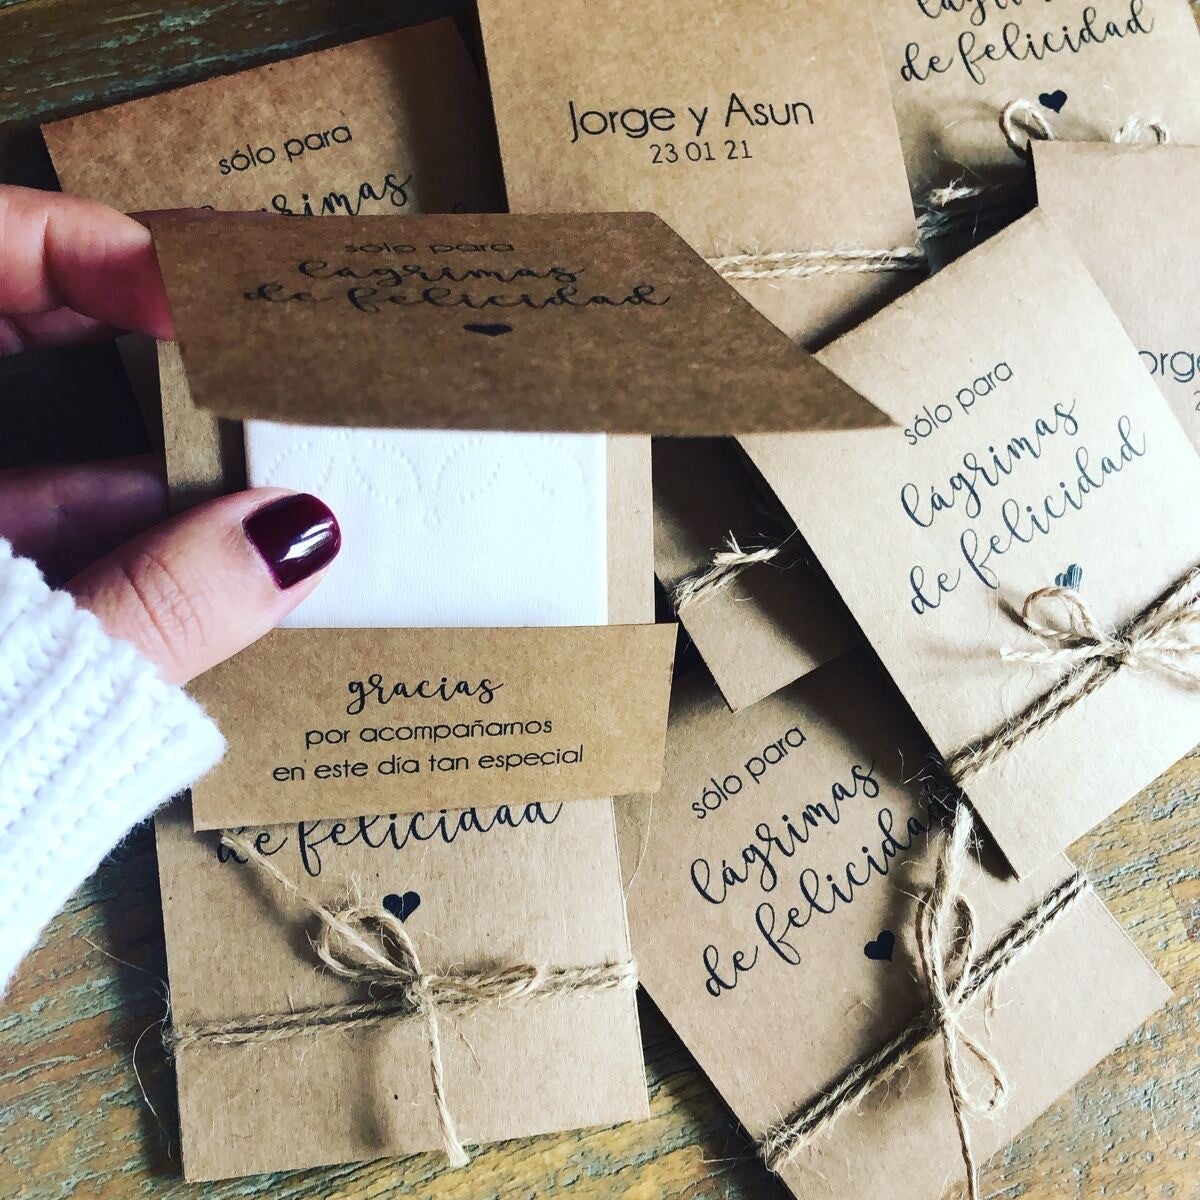 sólo para
Jorge y Asun
23 01 21
lágrimas
de felicidad
sólo para
lágrimas
de felicidad
sólo para
lágrimas
de felicidad
gracias
por acompañarnos
en este día tan especial
de felicidad
sólo para
lágrimas
de felicidad